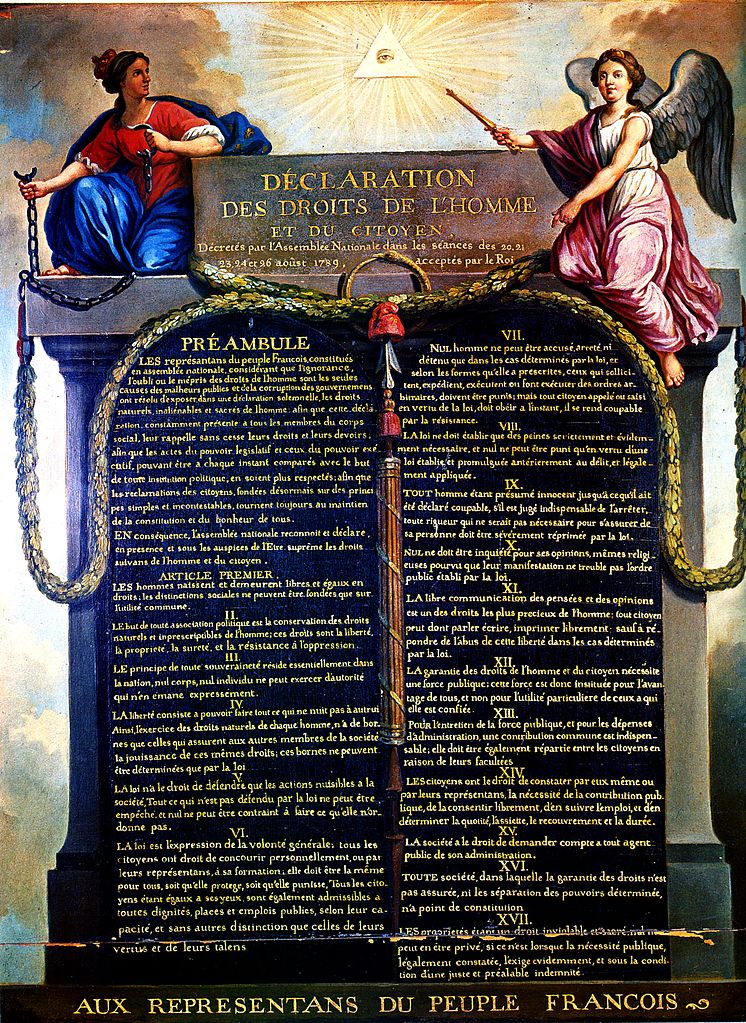 DÉCLARATION
DES DROITS DE L'HOMME
ET DU CITOYEN,
Décretés par l'Assemblée Nationale dans les séances des 20, 21
23, 24 et 26 aoûst 1789, acceptés par le Roi
PRÉAMBULE
LES représantans du peuple Francois, constitués
en assemblée nationale, considérant que l'ignorance,
l'oubli ou le mépris des droits de l'homme sont les seules
causes des malheurs publics et de la corruption des gouvernemens
ont résolu d'exposer dans une déclaration solemnelle, les droits
naturels, inaliénables et sacrés de l'homme; afin que cette décla-
ration, constamment présente a tous les membres du corps
social, leur rappelle sans cesse leurs droits et leurs devoirs,
afin que les actes du pouvoir législatif et ceux du pouvoir exé-
cutif, pouvant être a chaque instant comparés avec le but
de toute institution politique, en soient plus respectés; afin que
les reclamations des citoyens, fondées désormais sur des prin-
pes simples et incontestables, tournent toujours au maintien
de la constitution et du bonheur de tous.
EN conséquence, l'assemblée nationale reconnoit et déclare,
en presence et sous les auspices de l'Etre suprême les droits
suivans de l'homme et du citoyen.
ARTICLE PREMIER.
LES hommes naissent et demeurent libres et égaux en
droits; les distinctions sociales ne peuvent être fondées que sur
l'utilité commune.
II.
LE but de toute association politique est la conservation des droits
naturels et inprescriptibles de l'homme; ces droits sont la liberté,
la propriété, la sureté, et la résistance à l'oppression.
III.
LE principe de toute souveraineté réside essentiellement dans
la nation, nul corps, nul individu ne peut exercer d'autorité
qui n'en émane expressement.
IV.
LA liberté consiste a pouvoir faire tout ce qui ne nuit pas à autrui
Ainsi, l'exercice des droits naturels de chaque homme, n'a de bor-
nes que celles qui assurent aux autres membres de la société
la jouissance de ces mêmes droits; ces bornes ne peuvent
être déterminées que par la loi
V.
LA loi n'a le droit de défendre que les actions nuisibles a la
société, Tout ce qui n'est pas défendu par la loi ne peut être
empêché, et nul ne peut être contraint à faire ce qu'elle n'or-
donne pas.
VI.
LA loi est l'expression de la volonté générale; tous les
citoyens ont droit de concourir personnellement, ou par
leurs représentans, à sa formation; elle doit être la même
pour tous, soit qu'elle protege, soit qu'elle punisse, Tous les cito-
yens étant égaux a ses yeux, sont également admissibles a
toutes dignités, places et emplois publics, selon leur ca-
pacité, et sans autres distinction que celles de leurs
vertus et de leurs talens
VII.
NUL homme ne peut être accusé, arreté, ni
détenu que dans les cas déterminés par la loi, et
selon les formes qu'elle a prescrites, ceux qui sollici-
tent, expédient, exécutent ou font exécuter des ordres ar-
bitraires, doivent être punis; mais tout citoyen appelé ou saisi
en vertu de la loi, doit obéir a l'instant, il se rend coupable
par la résistance.
VIII.
LA loi ne doit établir que des peines strictement et évidem-
ment nécessaire, et nul ne peut être puni qu'en vertu d'une
loi établie, et promulguée antérierement au délit, et légale-
ment appliquée.
IX.
TOUT homme étant présumé innocent jusqu'a ce qu'il ait
été déclaré coupable, s'il est jugé indispensable de l'arrêter,
toute rigueur qui ne serait pas nécessaire pour s'assurer de
sa personne doit être sévèrement réprimée par la loi.
X.
NUL ne doit être inquiété pour ses opinions, mêmes religi-
euses pourvu que leur manifestation ne trouble pas l'ordre
public établi par la loi.
XI.
LA libre communication des pensées et des opinions
est un des droits les plus precieux de l'homme; tout citoyen
peut dont parler écrire, imprimer librement; sauf à ré-
pondre de l'abus de cette liberté dans les cas déterminés
par la loi.
XII.
LA garantie des droits de l'homme et du citoyen nécessite
une force publique; cette force est donc instituée pour l'avan-
tage de tous, et non pour l'utilité particuliere de ceux a qui
elle est confiée.
XIII.
POUR l'entretien de la force publique, et pour les dépenses
d'administration, une contribution commune est indispen-
sable; elle doit être également répartie entre les citoyens en
raison de leurs facultées
XIV.
LES citoyens ont le droit de constater par eux même ou
par leurs représentans, la nécessité de la contribution pub-
lique, de la consentir librement, d'en suivre l'emploi, et d'en
déterminer la quotité, l'assiette, le recouvrement et la durée.
XV.
LA société a le droit de demander compte a tout agent
public de son administration.
XVI.
TOUTE société, dans laquelle la garantie des droits n'est
pas assurée, ni les séparation des pouvoirs déterminée,
n'a point de constitution
XVII.
LES proprietés étant un droit inviolable et sacré, nul ne
peut en être privé, si ce n'est lorsque la nécessité publique,
légalement constatée, l'exige evidemment, et sous la condi-
tion d'une juste et préalable indemnité.
AUX REPRESENTANS DU PEUPLE FRANCOIS